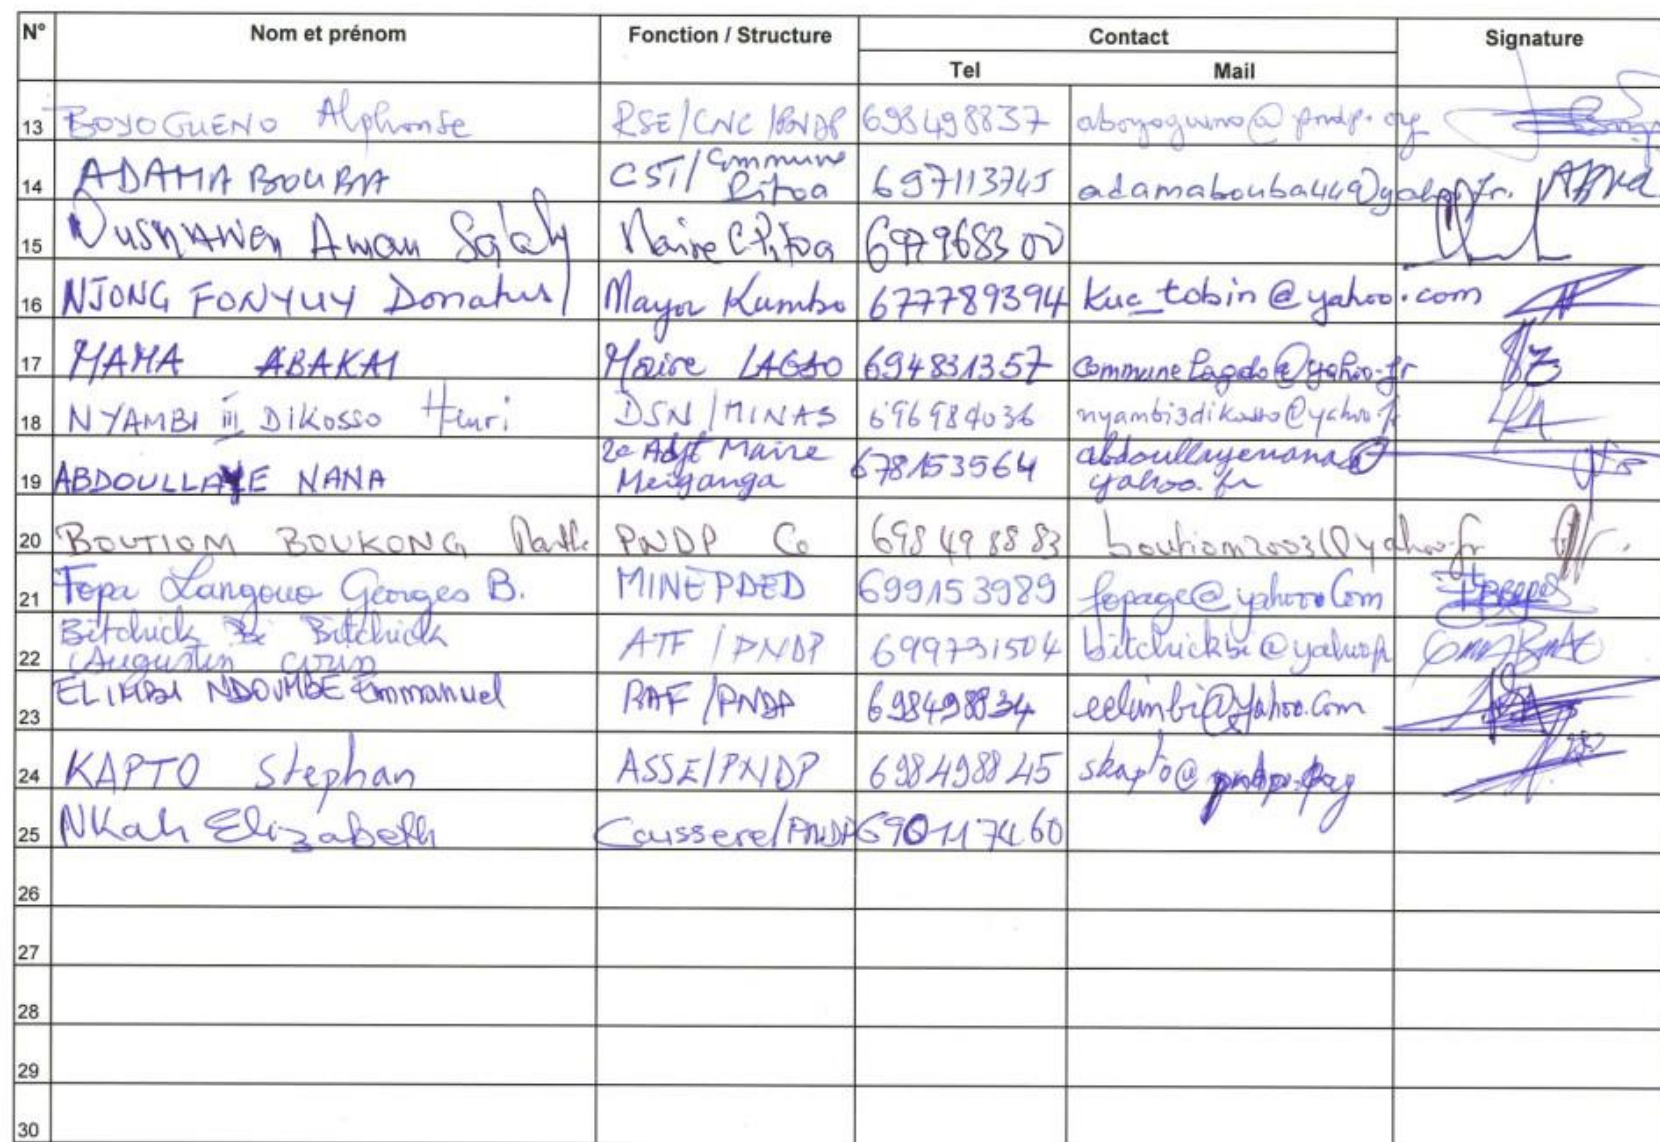 N° Nom et prénom Fonction / Structure Contact Signature
Tel Mail
13 BOYOGUENO Alphonse RSE/CNC/PNDP 698498837 aboyogueno@pndp.org
14 ADAMA BOUBA CST/Commune Pitoa 697113745 adamabouba449@yahoo.fr.
15 Aman Salaly Maire C.Pitoa
16 NJONG FONYUY Donatus Mayor Kumbo 677789394 kuc_tobin@yahoo.com
17 MAMA ABAKAI Maire LAGDO 694831357 communelagdo@yahoo.fr
18 NYAMBI III DIKOSSO Henri DSN/MINAS 696984036 nyambi3dikosso@yahoo.fr
19 ABDOULLAYE NANA 2e Adjt Maire Meiganga 678153564 abdoullayenana@yahoo.fr
20 BOUTIOM BOUKONG PNDP Co 698498883 boutiom2003@yahoo.fr
21 Fopa Langouo Georges B. MINEPDED 699153989 fopage@yahoo.Com
22 Bitchick Bi Bitchick Augustin ATF/PNDP 699731504 bitchickbi@yahoo.fr
23 ELIMBI NDOUMBE Emmanuel RAF/PNDP 698498834 eelimbi@yahoo.Com
24 KAPTO Stephan ASSE/PNDP 698498845 skapto@pndp.org
25 NKah Elizabeth Caissere/PNDP 690117460
26
27
28
29
30